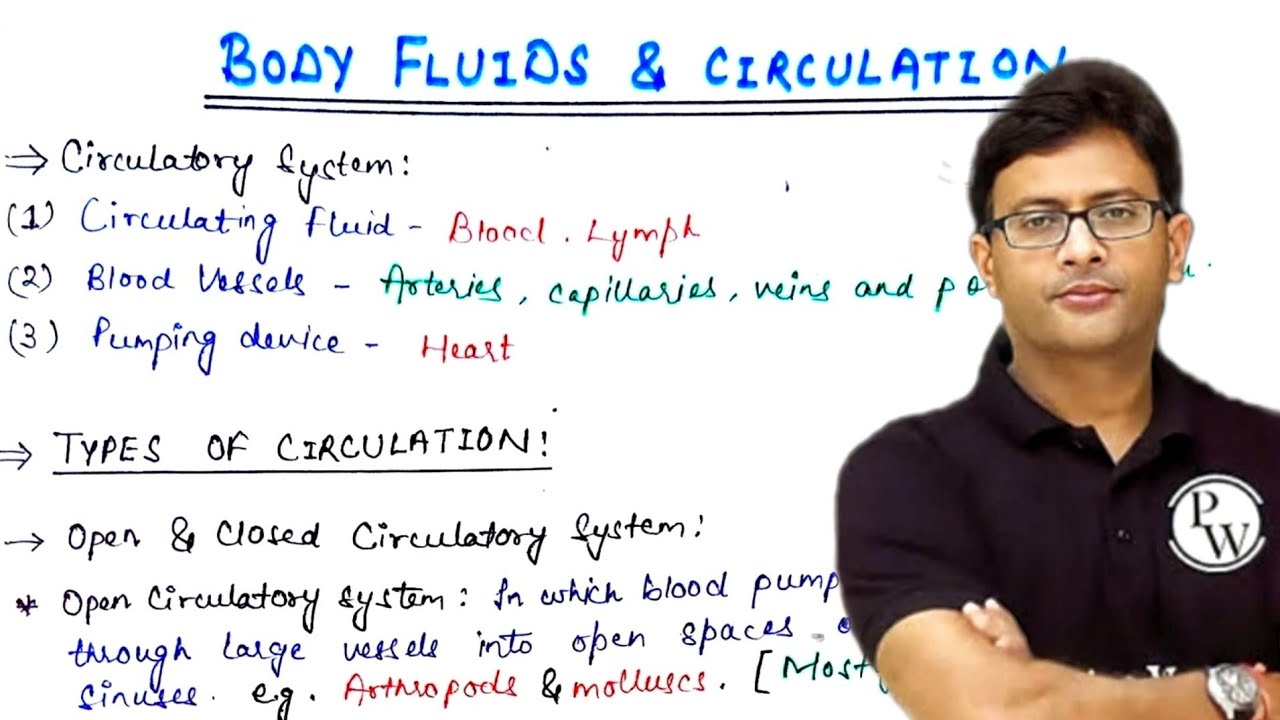 BODY FLUIDS & CIRCULATION
⇒ Circulatory System:
(1) Circulating fluid - Blood. Lymph
(2) Blood Vessels - Arteries, capillaries, veins and
(3) Pumping device - Heart
⇒ TYPES OF CIRCULATION:
→ Open & Closed Circulatory System:
* Open Circulatory System: In which blood pump
through large vessels into open spaces
sinuses. e.g. Arthropods & molluscs. [
PW